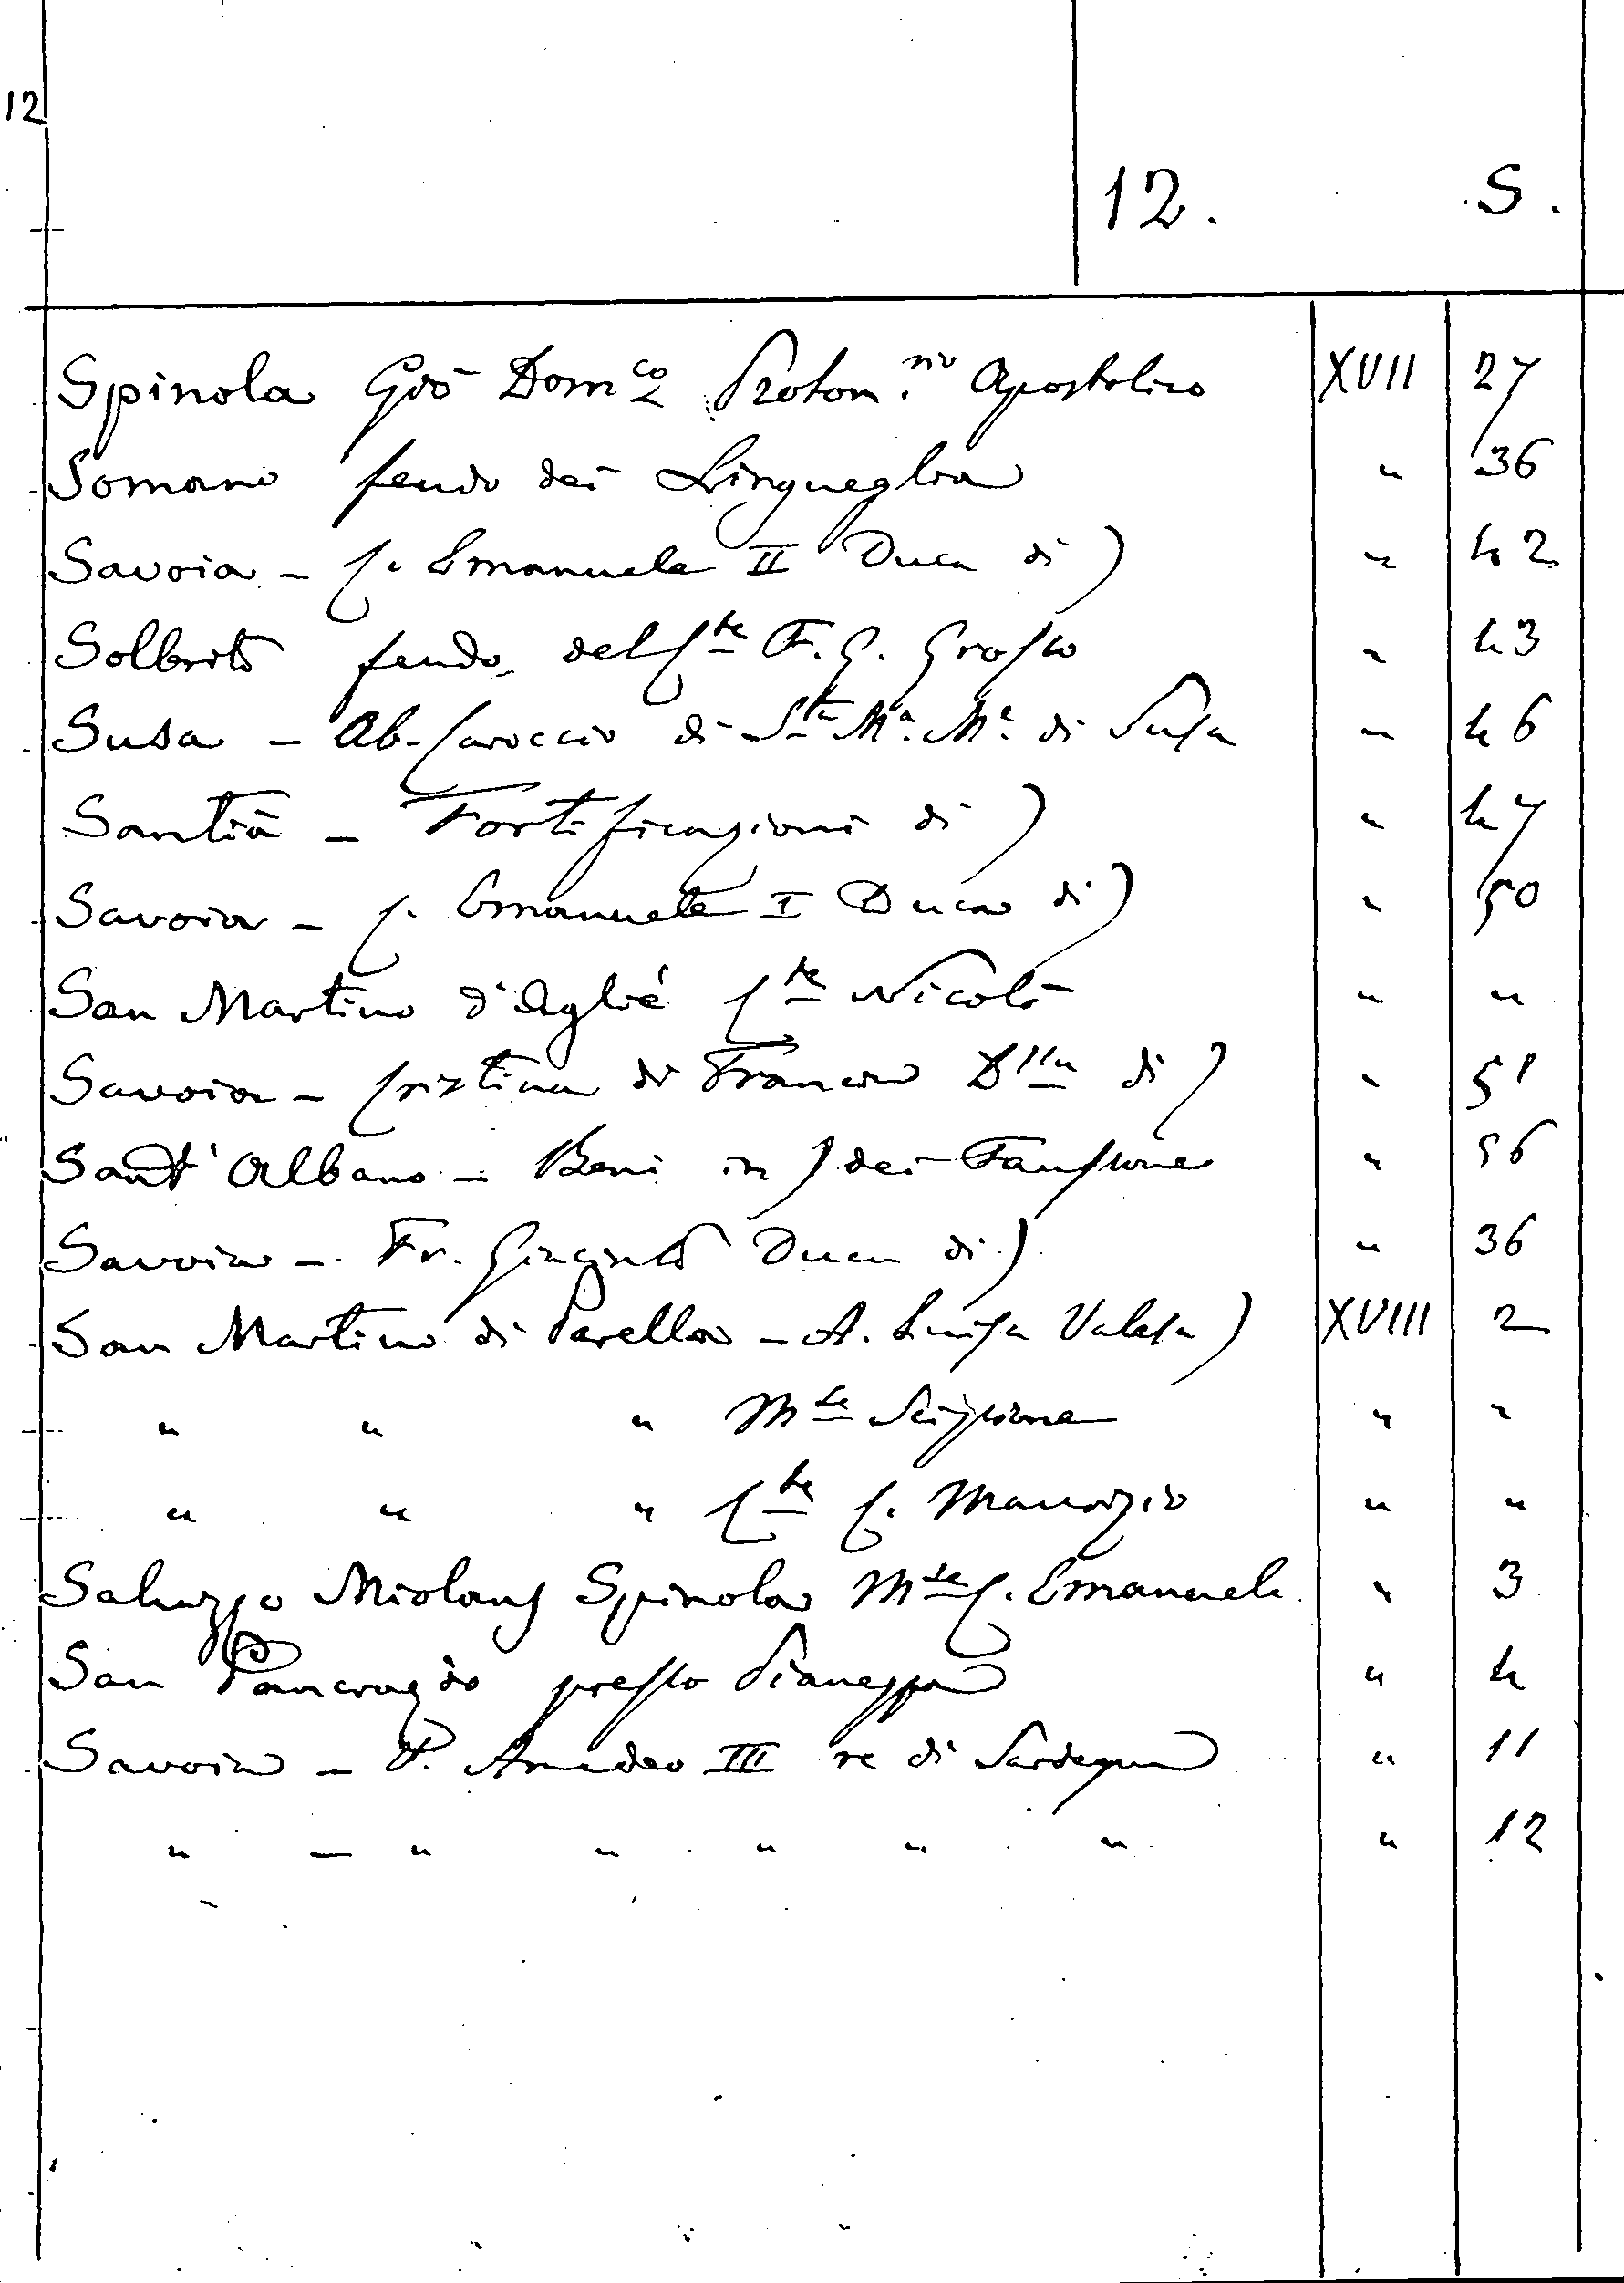 12
12. S.
Spinola Giō Dom.co Proton.rio Apostolico XVII 27
Somano feudo dei Lingueglia " 36
Savoia - C. Emanuele II Duca di) " 42
Solbrito feudo del Cte F. G. Grosso " 43
Susa - Ab. Caroccio di Sta Ma. Me. di Susa " 46
Santià - Fortificazioni di) " 47
Savoia - C. Emanuele I Duca di) " 50
San Martino d'Aglié Cte Nicolò " "
Savoia - Cristina di Francia Dssa di) " 51
Sant'Albano - Beni in) dei Faussone " 56
Savoia - Fr. Giacinto Duca di) " 36
San Martino di Parella - A. Luisa Valesa) XVIII 2
" " " Mse Scipione " "
" " " Cte C. Maurizio " "
Saluzzo Miolans Spinola Mse C. Emanuele " 3
San Pancrazio presso Pianezza " 4
Savoia - V. Amedeo III re di Sardegna " 11
" — " " " " " " 12